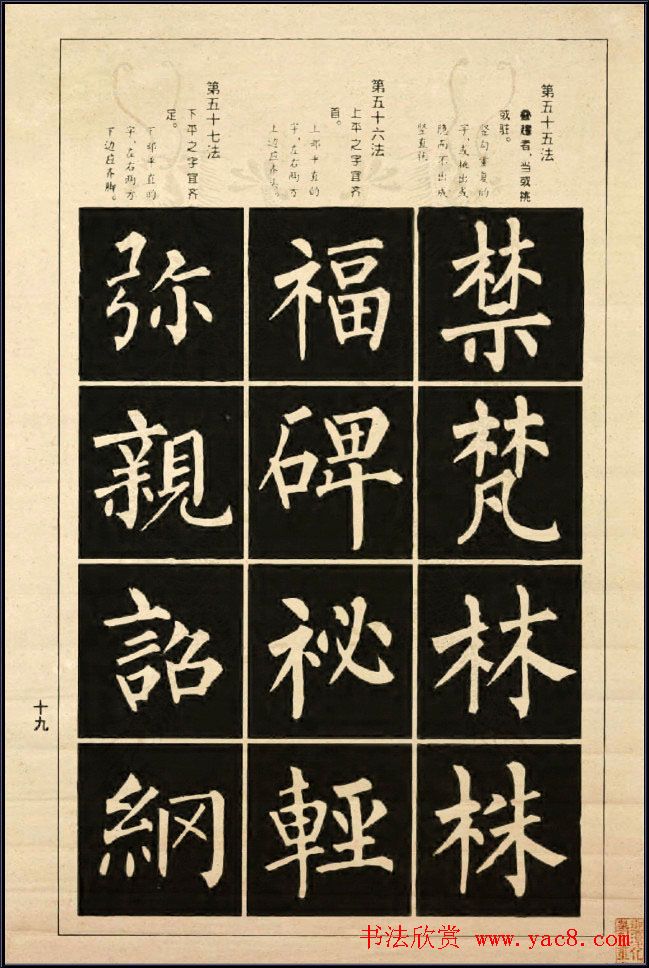 第五十五法
叠趯者，当或挑
或驻。
竖勾重复的
字，或挑出或
隐而不出成
竖直
禁
梵
林
株
第五十六法
上平之字宜齐
首。
上部平直的
字，左右两方
上边应齐头。
福
碑
祕
輕
第五十七法
下平之字宜齐
足。
下部平直的
字，左右两方
下边应齐脚。
弥
親
詔
綱
十九
书法欣赏 www.yac8.com